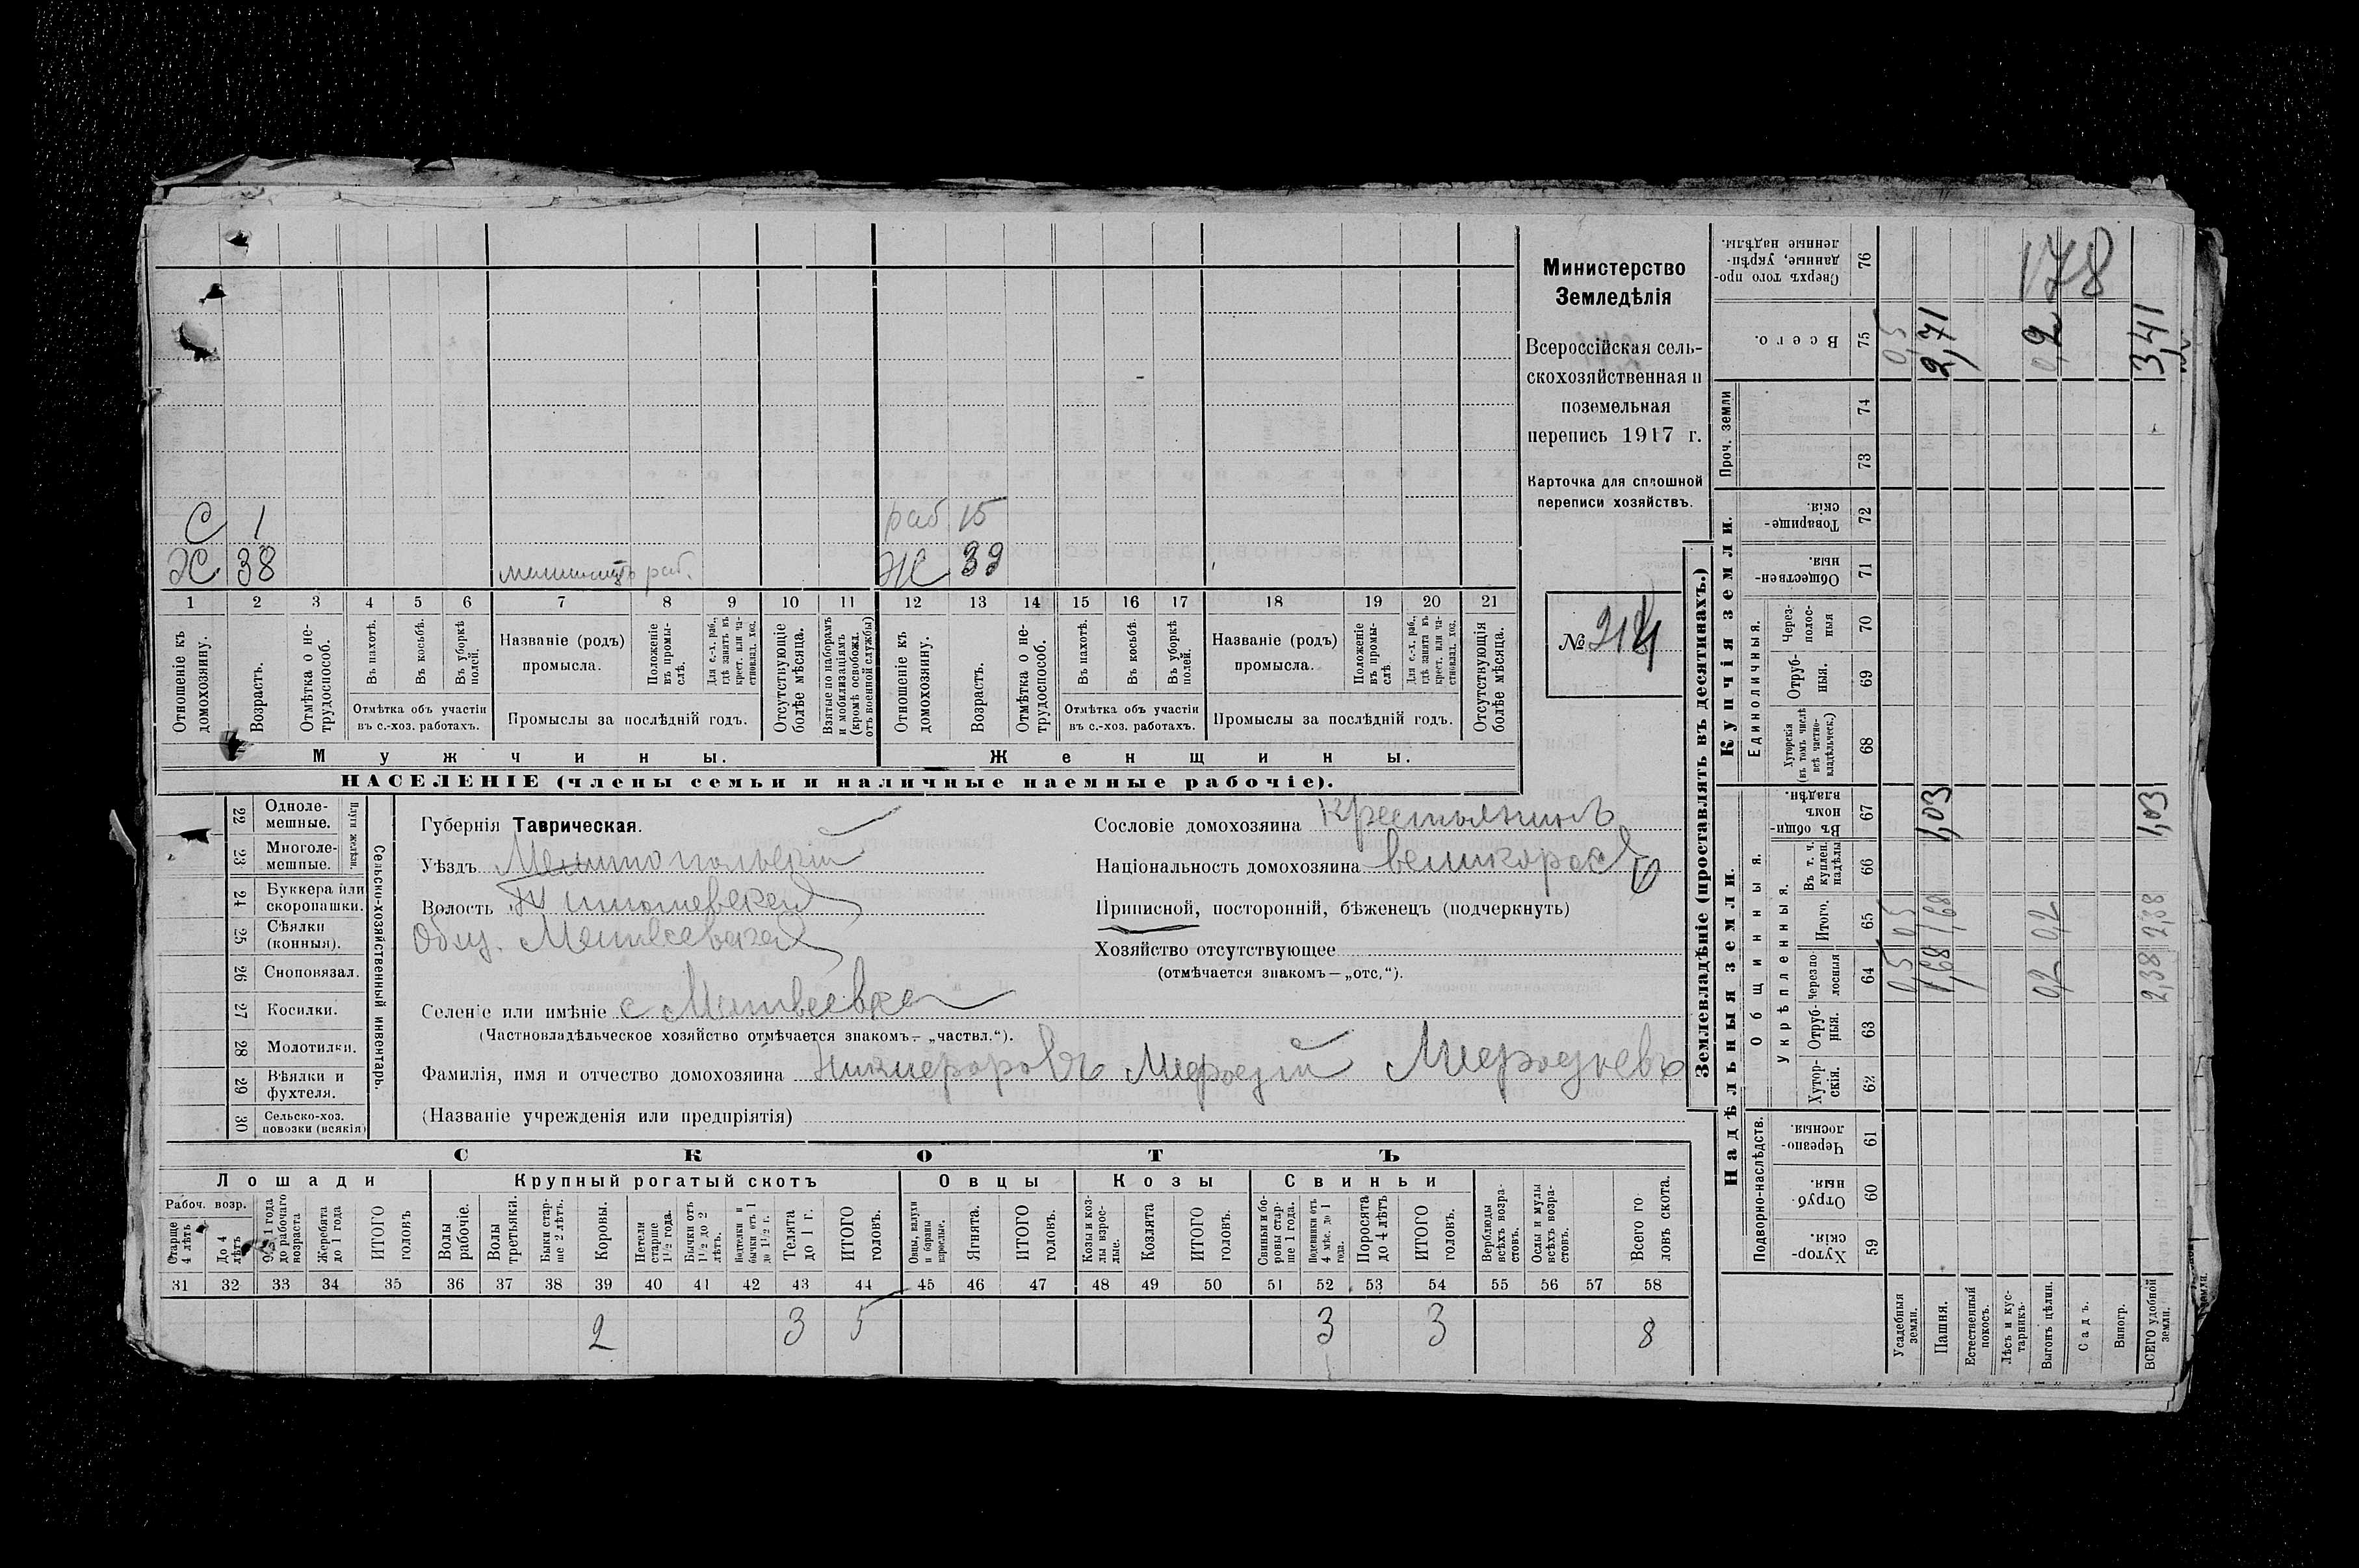 Министерство
Земледѣлія
Всероссійская сель-
скохозяйственная и
поземельная
перепись 1917 г.
Карточка для сплошной
переписи хозяйствъ.
№ 214
178
С 1
раб. 15
Ж. 38
раб.
Ж 39
1 2 3 4 5 6 7 8 9 10 11 12 13 14 15 16 17 18 19 20 21
Отношеніе къ домохозяину.
Возрастъ.
Отмѣтка о не-трудоспособ.
Въ пахотѣ.
Въ косьбѣ.
Въ уборкѣ полей.
Отмѣтка объ участіи
въ с.-хоз. работахъ.
Названіе (родъ)
промысла.
Положеніе въ промы-слѣ.
Для с.-х. раб., гдѣ занятъ въ крест. или ча-стновлад. хоз.
Промыслы за послѣдній годъ.
Отсутствующіе болѣе мѣсяца.
Взятые по наборамъ и мобилизаціямъ (кромѣ освобожд. отъ военной службы)
Отношеніе къ домохозяину.
Возрастъ.
Отмѣтка о не-трудоспособ.
Въ пахотѣ.
Въ косьбѣ.
Въ уборкѣ полей.
Отмѣтка объ участіи
въ с.-хоз. работахъ.
Названіе (родъ)
промысла.
Положеніе въ промы-слѣ
Для с.-х. раб., гдѣ занята въ крест. или ча-стновлад. хоз.
Промыслы за послѣдній годъ.
Отсутствующія болѣе мѣсяца.
Мужчины.
Женщины.
НАСЕЛЕНІЕ (члены семьи и наличные наемные рабочіе).
Сельско-хозяйственный инвентарь.
Плуги желѣзн.
22 Одноле-мешные.
23 Многоле-мешные.
24 Буккера или скоропашки.
25 Сѣялки (конныя).
26 Сноповязал.
27 Косилки.
28 Молотилки.
29 Вѣялки и фухтеля.
30 Сельско-хоз. повозки (всякія)
Губернія Таврическая.
Уѣздъ Мелитопольскій
Волость
Общ. Матвеевская
Селеніе или имѣніе с Матвеевка
(Частновладѣльческое хозяйство отмѣчается знакомъ— „частвл.“).
Фамилія, имя и отчество домохозяина Никифоровъ Мефодій Мефодиевъ
(Названіе учрежденія или предпріятія)
Сословіе домохозяина Крестьянинъ
Національность домохозяина великоросъ
Приписной, посторонній, бѣженецъ (подчеркнуть)
Хозяйство отсутствующее
(отмѣчается знакомъ—„отс.“).
СКОТЪ
Лошади
Крупный рогатый скотъ
Овцы
Козы
Свиньи
Рабоч. возр.
Старше 4 лѣтъ
До 4 лѣтъ
Отъ 1 года до рабочаго возраста
Жеребята до 1 года
ИТОГО головъ
Волы рабочіе.
Волы третьяки.
Быки стар-ше 2 лѣтъ.
Коровы.
Нетели старше 1½ года.
Бычки отъ 1½ до 2 лѣтъ.
Подтелки и бычки отъ 1 до 1½ г.
Телята до 1 г.
ИТОГО головъ.
Овцы, валухи и бараны взрослые.
Ягнята.
ИТОГО головъ.
Козы и коз-лы взрос-лые.
Козлята
ИТОГО головъ.
Свиньи и бо-ровы стар-ше 1 года.
Подсвинки отъ 4 мѣс. до 1 года.
Поросята до 4 лѣтъ
ИТОГО головъ.
Верблюды всѣхъ возра-стовъ.
Ослы и мулы всѣхъ возра-стовъ.
Всего го ловъ скота.
31 32 33 34 35 36 37 38 39 40 41 42 43 44 45 46 47 48 49 50 51 52 53 54 55 56 57 58
2 3 5 3 3 8
Землевладѣніе (проставлять въ десятинахъ.)
Надѣльныя земли.
Купчія земли.
Проч. земли
Подворно-наслѣдств.
Общинныя.
Укрѣпленныя.
Единоличныя.
59 Хутор-скія.
60 Отруб-ныя.
61 Черезпо-лосныя.
62 Хутор-скія.
63 Отруб-ныя.
64 Черезпо-лосныя
65 Итого.
66 Въ т. ч. куплен. надѣлы
67 Въ общи-номъ владѣн.
68 Хуторскія (въ томъ числѣ всѣ частно-владѣльческ.)
69 Отруб-ныя.
70 Через-полос-ныя
71 Обществен-ныя.
72 Товарище-скія.
73
74
75 Всего.
76 Сверхъ того про-данные, укрѣп-ленные надѣлы.
Усадебныя земли. 0,5 0,5 0,5
Пашня. 1,68 1,68 1,03 2,71
Естественный покосъ.
Лѣсъ и кус-тарникъ.
Выгонъ цѣлин. 0,2 0,2 0,2
Садъ.
Виногр.
ВСЕГО удобной земли. 2,38 2,38 1,03 3,41